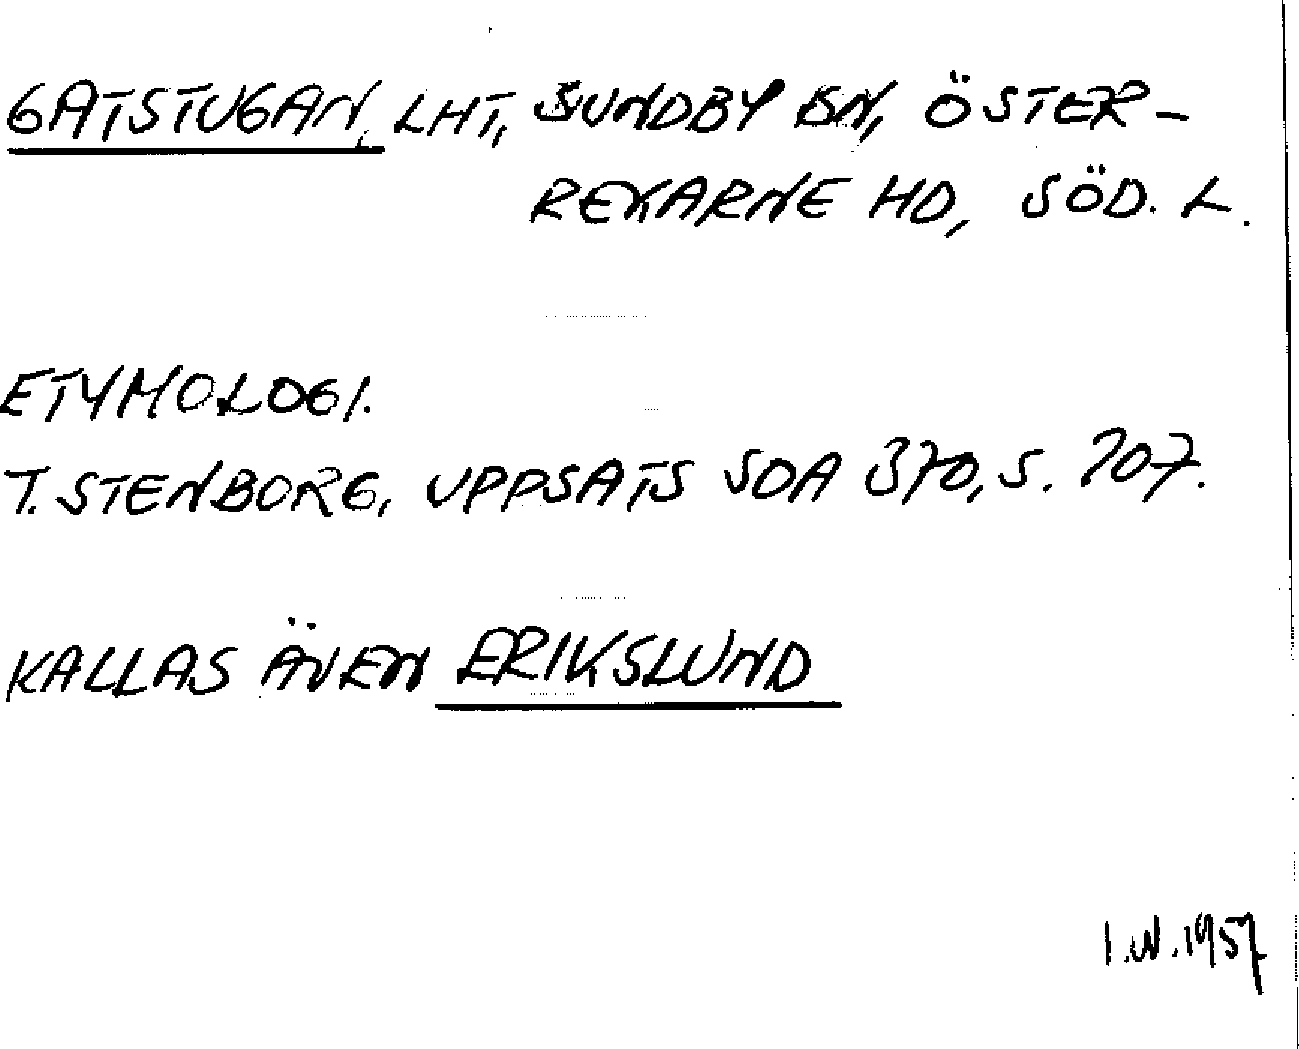 GATSTUGAN, LHT, SUNDBY SN, ÖSTER-
REKARNE HD, SÖD. L.
ETYMOLOGI.
T. STENBORG, UPPSATS SOA 370, S. 207.
KALLAS ÄVEN ERIKSLUND
I.W.1957